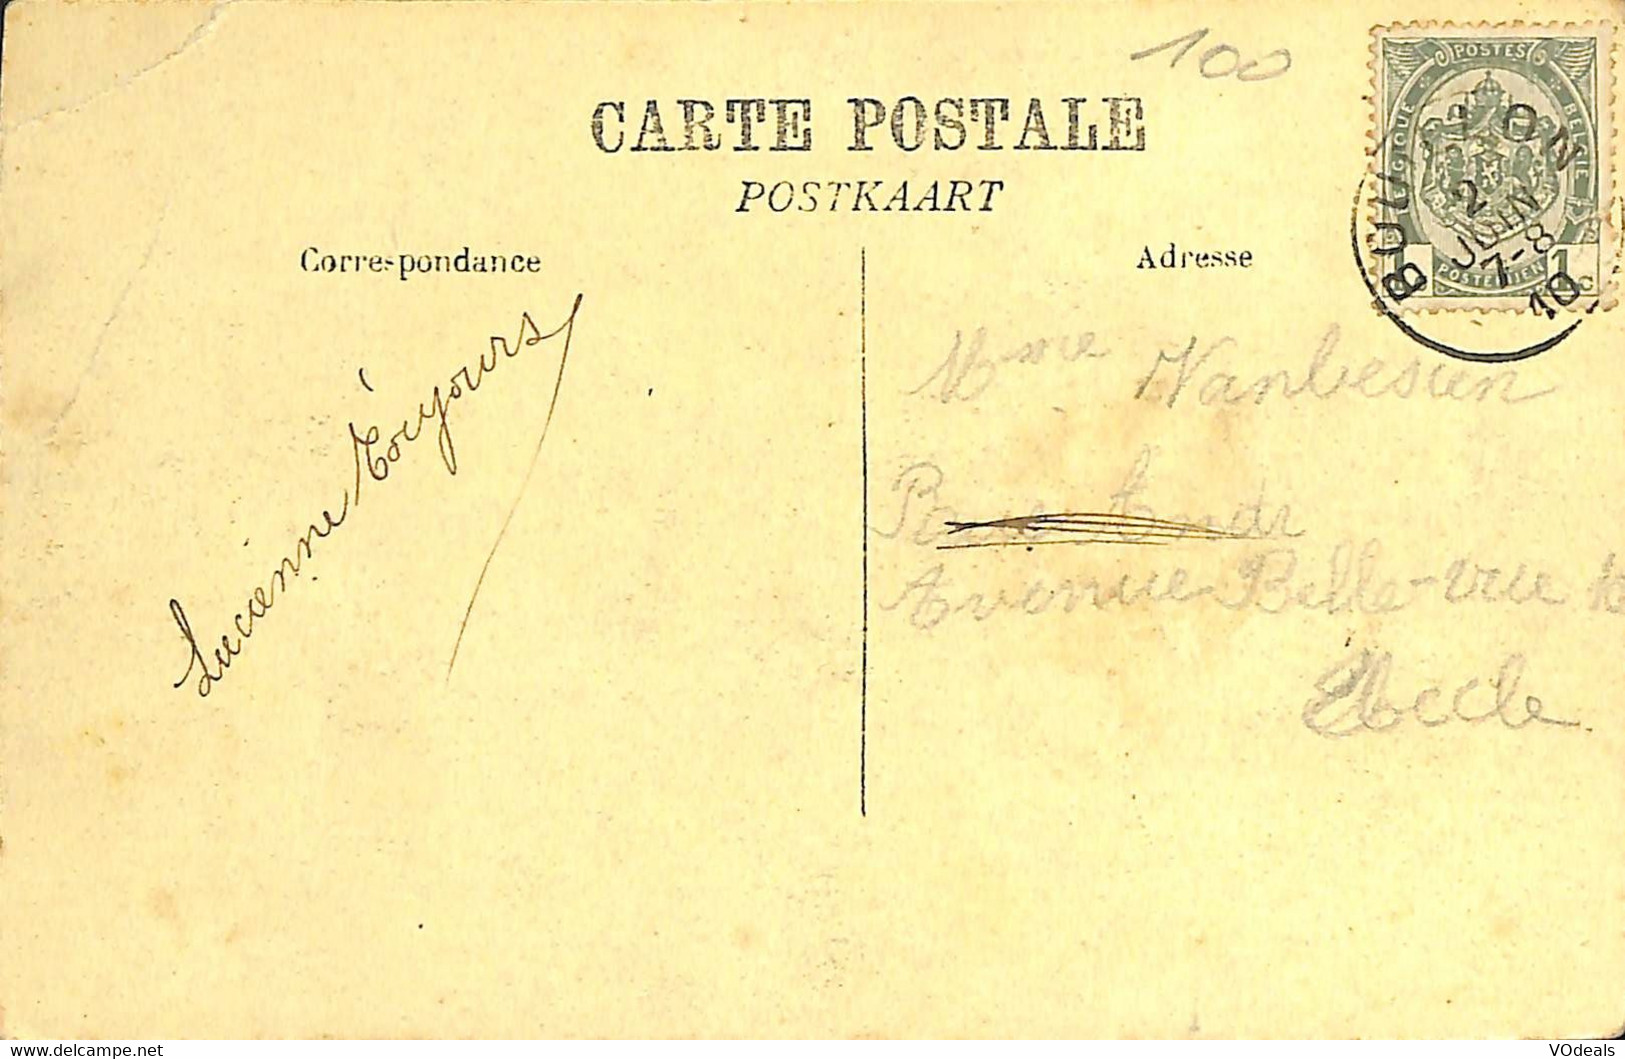 100
CARTE POSTALE
POSTKAART
Correspondance
Adresse
POSTES
BELGIQUE
BELGIË
POSTERIJEN
1
1
BOUILLON
2
JUIN
7-8
10
Lucienne Toujours
Mme Vanbesien
Avenue Belle-vue
Uccle
VOdeals